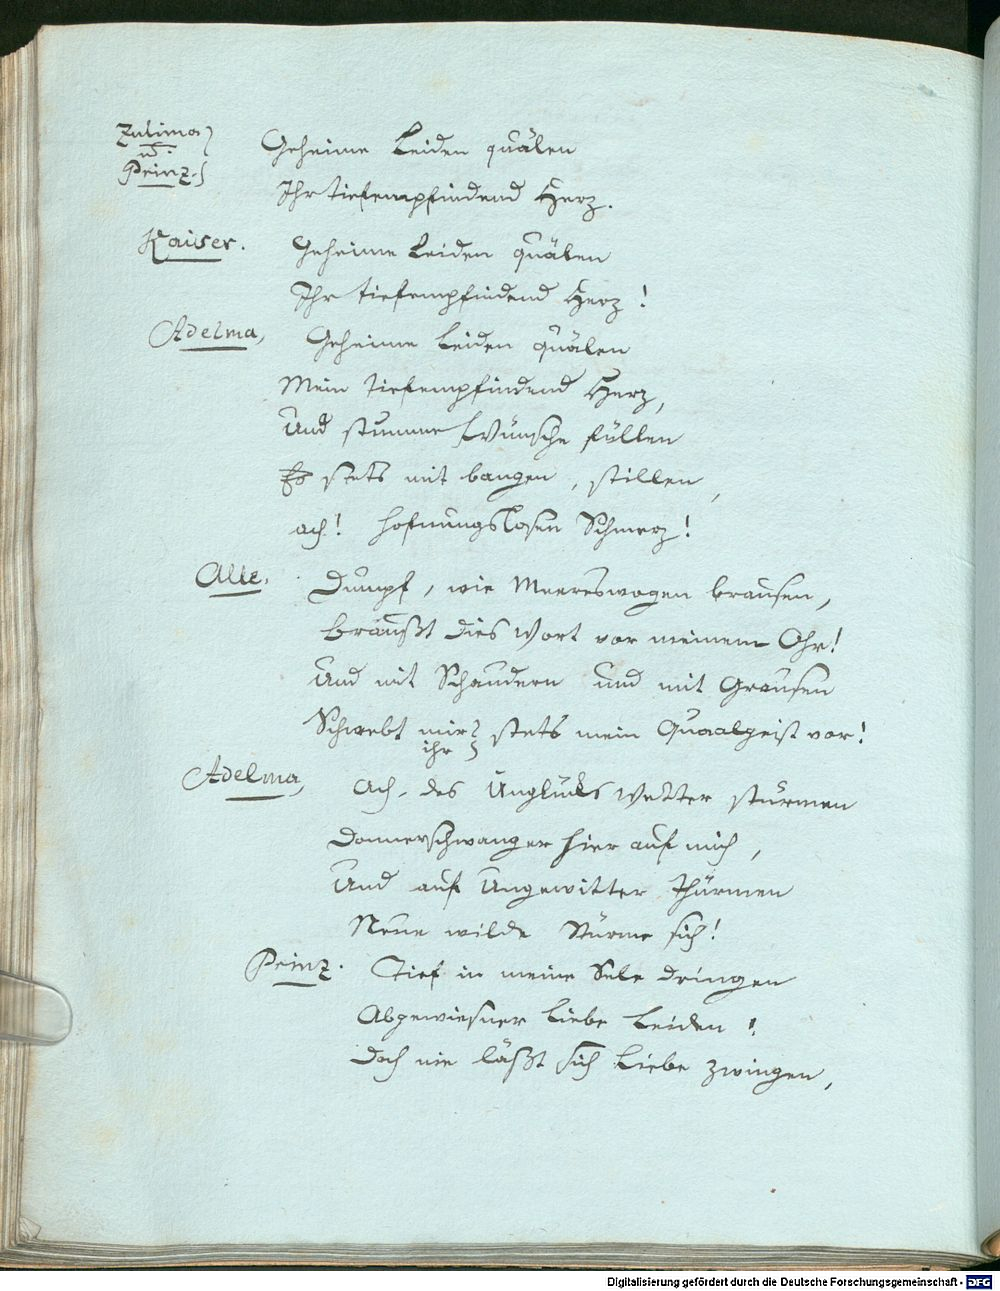 Zulima
u.
Prinz.
Geheime Leiden quälen
Ihr tiefempfindend Herz.
Kaiser.
Geheime Leiden quälen
Ihr tiefempfindend Herz!
Adelma,
Geheime Leiden quälen
Mein tiefempfindend Herz,
Und stumme Wünsche füllen
Es stets mit bangen, stillen,
ach! hofnungslosen Schmerz!
Alle.
Dumpf, wie Meereswogen brausen,
Braußt dies Wort vor meinem Ohr!
Und mit Schaudern und mit Grausen
Schwebt mir stets mein Quaalgeist vor!
ihr
Adelma,
Ach, des Unglücks Wetter stürmen
Donnerschwanger hier auf mich,
Und auf Ungewitter thürmen
Neue wilde Stürme sich!
Prinz.
Tief in meine Sele dringen
Abgewiesner Liebe Leiden!
Doch nie läßt sich Liebe zwingen,
Digitalisierung gefördert durch die Deutsche Forschungsgemeinschaft - DFG